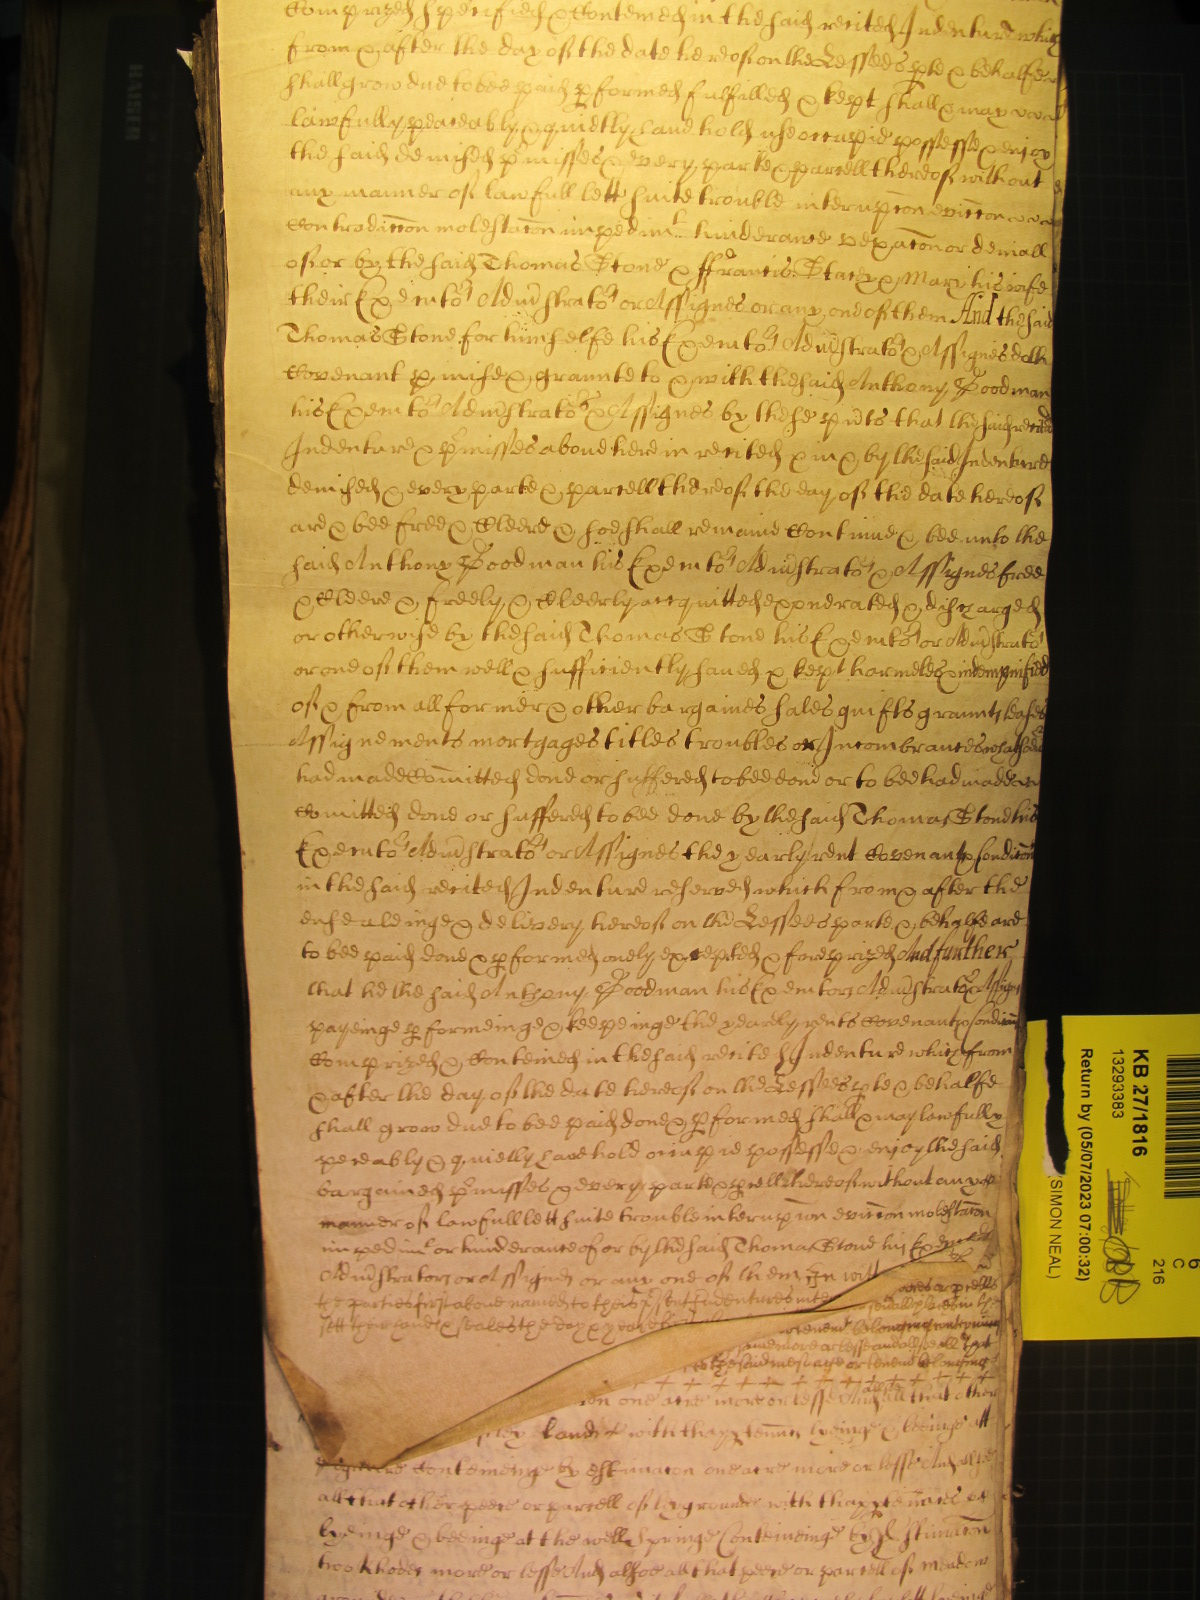 Comprized specified & Conteined in the said recited Indenture which
from & after the day of the date hereof on the Lessees pte & behalfe
shall grow due to bee paid pformed fulfilled & kept shall & may
lawfully peaceably & quietly have hold use occupie possesse & enjoy
the said demised pmisses & every parte & parcell thereof without
any manner of lawfull lett suite trouble interupcon eviccon
Contradiccon molestacon impedimt hinderance vexacon or deniall
of or by the said Thomas Stone & ffrancis Stacey & Mary his wife
their Executors Administrators or Assignes or any one of them And the said
Thomas Stone for himselfe his Executors Administrators & Assignes doth
Covenant pmise & graunte to & with the said Anthony Goodman
his Executors Administrators & Assignes by these pnts that the said recited
Indenture & pmisses above herein recited & in & by the said Indenture
demised & every parte & parcell thereof the day of the date hereof
are & bee free & Cleere & soe shall remaine Continue & bee unto the
said Anthony Goodman his Executors Administrators & Assignes free
& Cleere & freely & Cleerly acquitted exonerated & discharged
or otherwise by the said Thomas Stone his Executors or Administrators
or one of them well & sufficiently saved & kept harmeles & indempnified
of & from all former & other bargaines sales guifts graunts leases
Assignements mortgages titles troubles or Incombrances whatsoever
had made Comitted done or suffered to bee done or to bee had made
Comitted done or suffered to bee done by the said Thomas Stone his
Executors Administrators or Assignes the yearly rent Covenants & Condicons
in the said recited Indenture reserved which from & after the
ensealeinge & delivery hereof on the Lessees parte & behalfe are
to bee paid done & pformed onely excepted & foreprized And further
that he the said Anthony Goodman his Executors Administrators & Assignes
payeinge pformeinge & keepeinge the yearly rents Covenants & Condicons
Comprized & Conteined in the said recited Indenture which from
& after the day of the date hereof on the Lessees pte & behalfe
shall grow due to bee paid done & pformed shall & may lawfully
peceably & quietly have hold occupie possesse & enjoy the said
bargained pmisses & every parte & pcell thereof without any
manner of lawfull lett suite trouble interupcon eviccon molestacon
impedimt or hinderance of or by the said Thomas Stone his Executors
Administrators or Assignes or any one of them In witt
the parties first above named to theis psent Indentures
sett their hands & seales the day & yeare
belonginge
to the said messuage or tenemt belonginge
one acre more or lesse And all that other
land with thapptennces lyeinge & beeinge att
Conteineinge by estimacon one acre more or lesse And alsoe
all that other peece or parcell of ley ground with thapptennces
lyeinge & beeinge at the well Springe Conteineinge by Estimacon
two rhodes more or lesse And alsoe all that peece or parcell of meadow
KB 27/1816
13293383
Return by (05/07/2023 07:00:32)
(SIMON NEAL)
216
C
6
KAISER